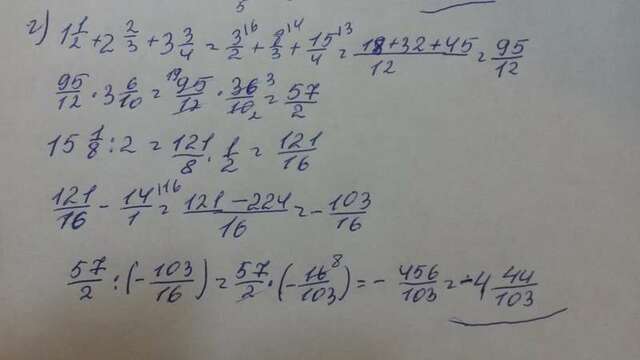 5
г) 1 1/2 + 2 2/3 + 3 3/4 = 3/2 ⁽⁶ + 8/3 ⁽⁴ + 15/4 ⁽³ = (18+32+45)/12 = 95/12
95/12 · 3 6/10 = ¹⁹95/12 · 36³/10₂ = 57/2
15 1/8 : 2 = 121/8 · 1/2 = 121/16
121/16 - 14/1 ⁽¹⁶ = (121-224)/16 = -103/16
57/2 : (-103/16) = 57/2 · (-16⁸/103) = -456/103 = -4 44/103